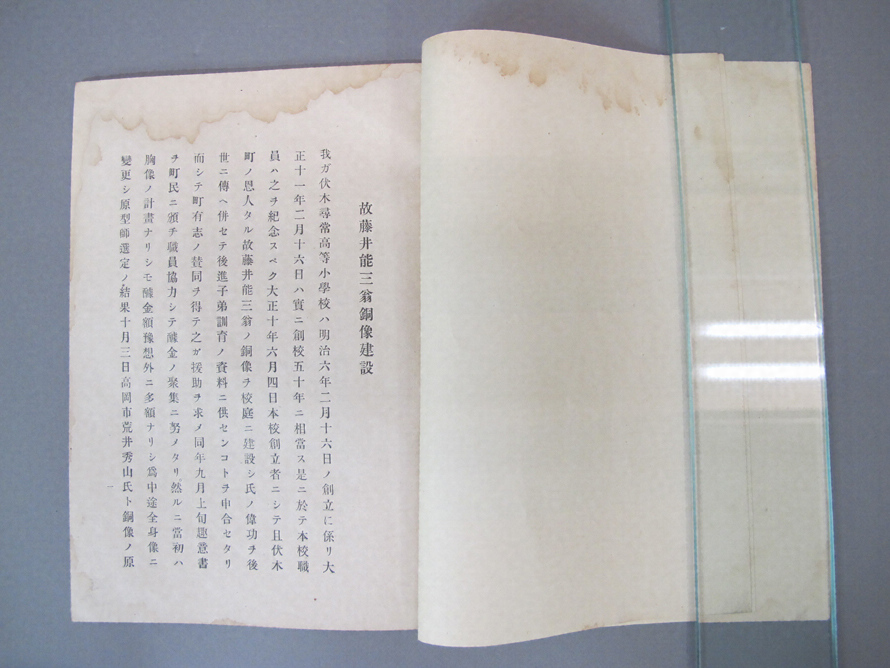 故藤井能三翁銅像建設
我ガ伏木尋常高等小學校ハ明治六年二月十六日ノ創立に係リ大
正十一年二月十六日ハ實ニ創校五十年ニ相當ス是ニ於テ本校職
員ハ之ヲ紀念スベク大正十年六月四日本校創立者ニシテ且伏木
町ノ恩人タル故藤井能三翁ノ銅像ヲ校庭ニ建設シ氏ノ偉功ヲ後
世ニ傳ヘ併セテ後進子弟訓育ノ資料ニ供センコトヲ申合セタリ
而シテ町有志ノ賛同ヲ得テ之ガ援助ヲ求メ同年九月上旬趣意書
ヲ町民ニ頒チ職員協力シテ醵金ノ聚集ニ努メタリ然ルニ當初ハ
胸像ノ計畫ナリシモ醵金額豫想外ニ多額ナリシ爲中途全身像ニ
變更シ原型師選定ノ結果十月三日高岡市荒井秀山氏ト銅像ノ原
一